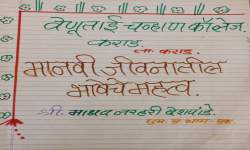 वेणूताई चव्हाण कॉलेज
कराड
ता. कराड.
मानवी जीवनातील
भाषेचे महत्त्व.
श्री. माधव नरहरी देशपांडे.
एम. ए भाग - एक